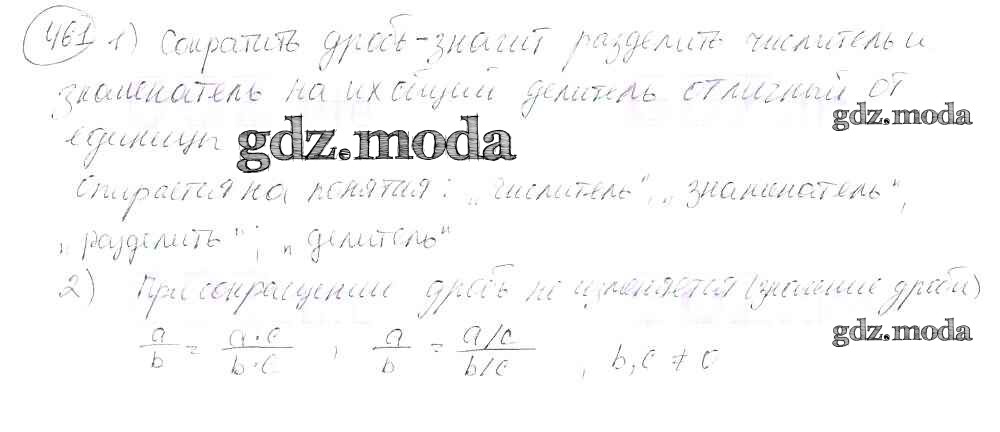 461 1) Сократить дробь - значит разделить числитель и
знаменатель на их общий делитель отличный от
gdz.moda
единицы gdz.moda
Опирается на понятия: „числитель", „знаменатель",
„разделить"; „делитель"
2) При сокращении дробь не изменяется (значение дроби)
gdz.moda
a/b = a·c/b·c , a/b = a/c/b/c , b,c ≠ 0